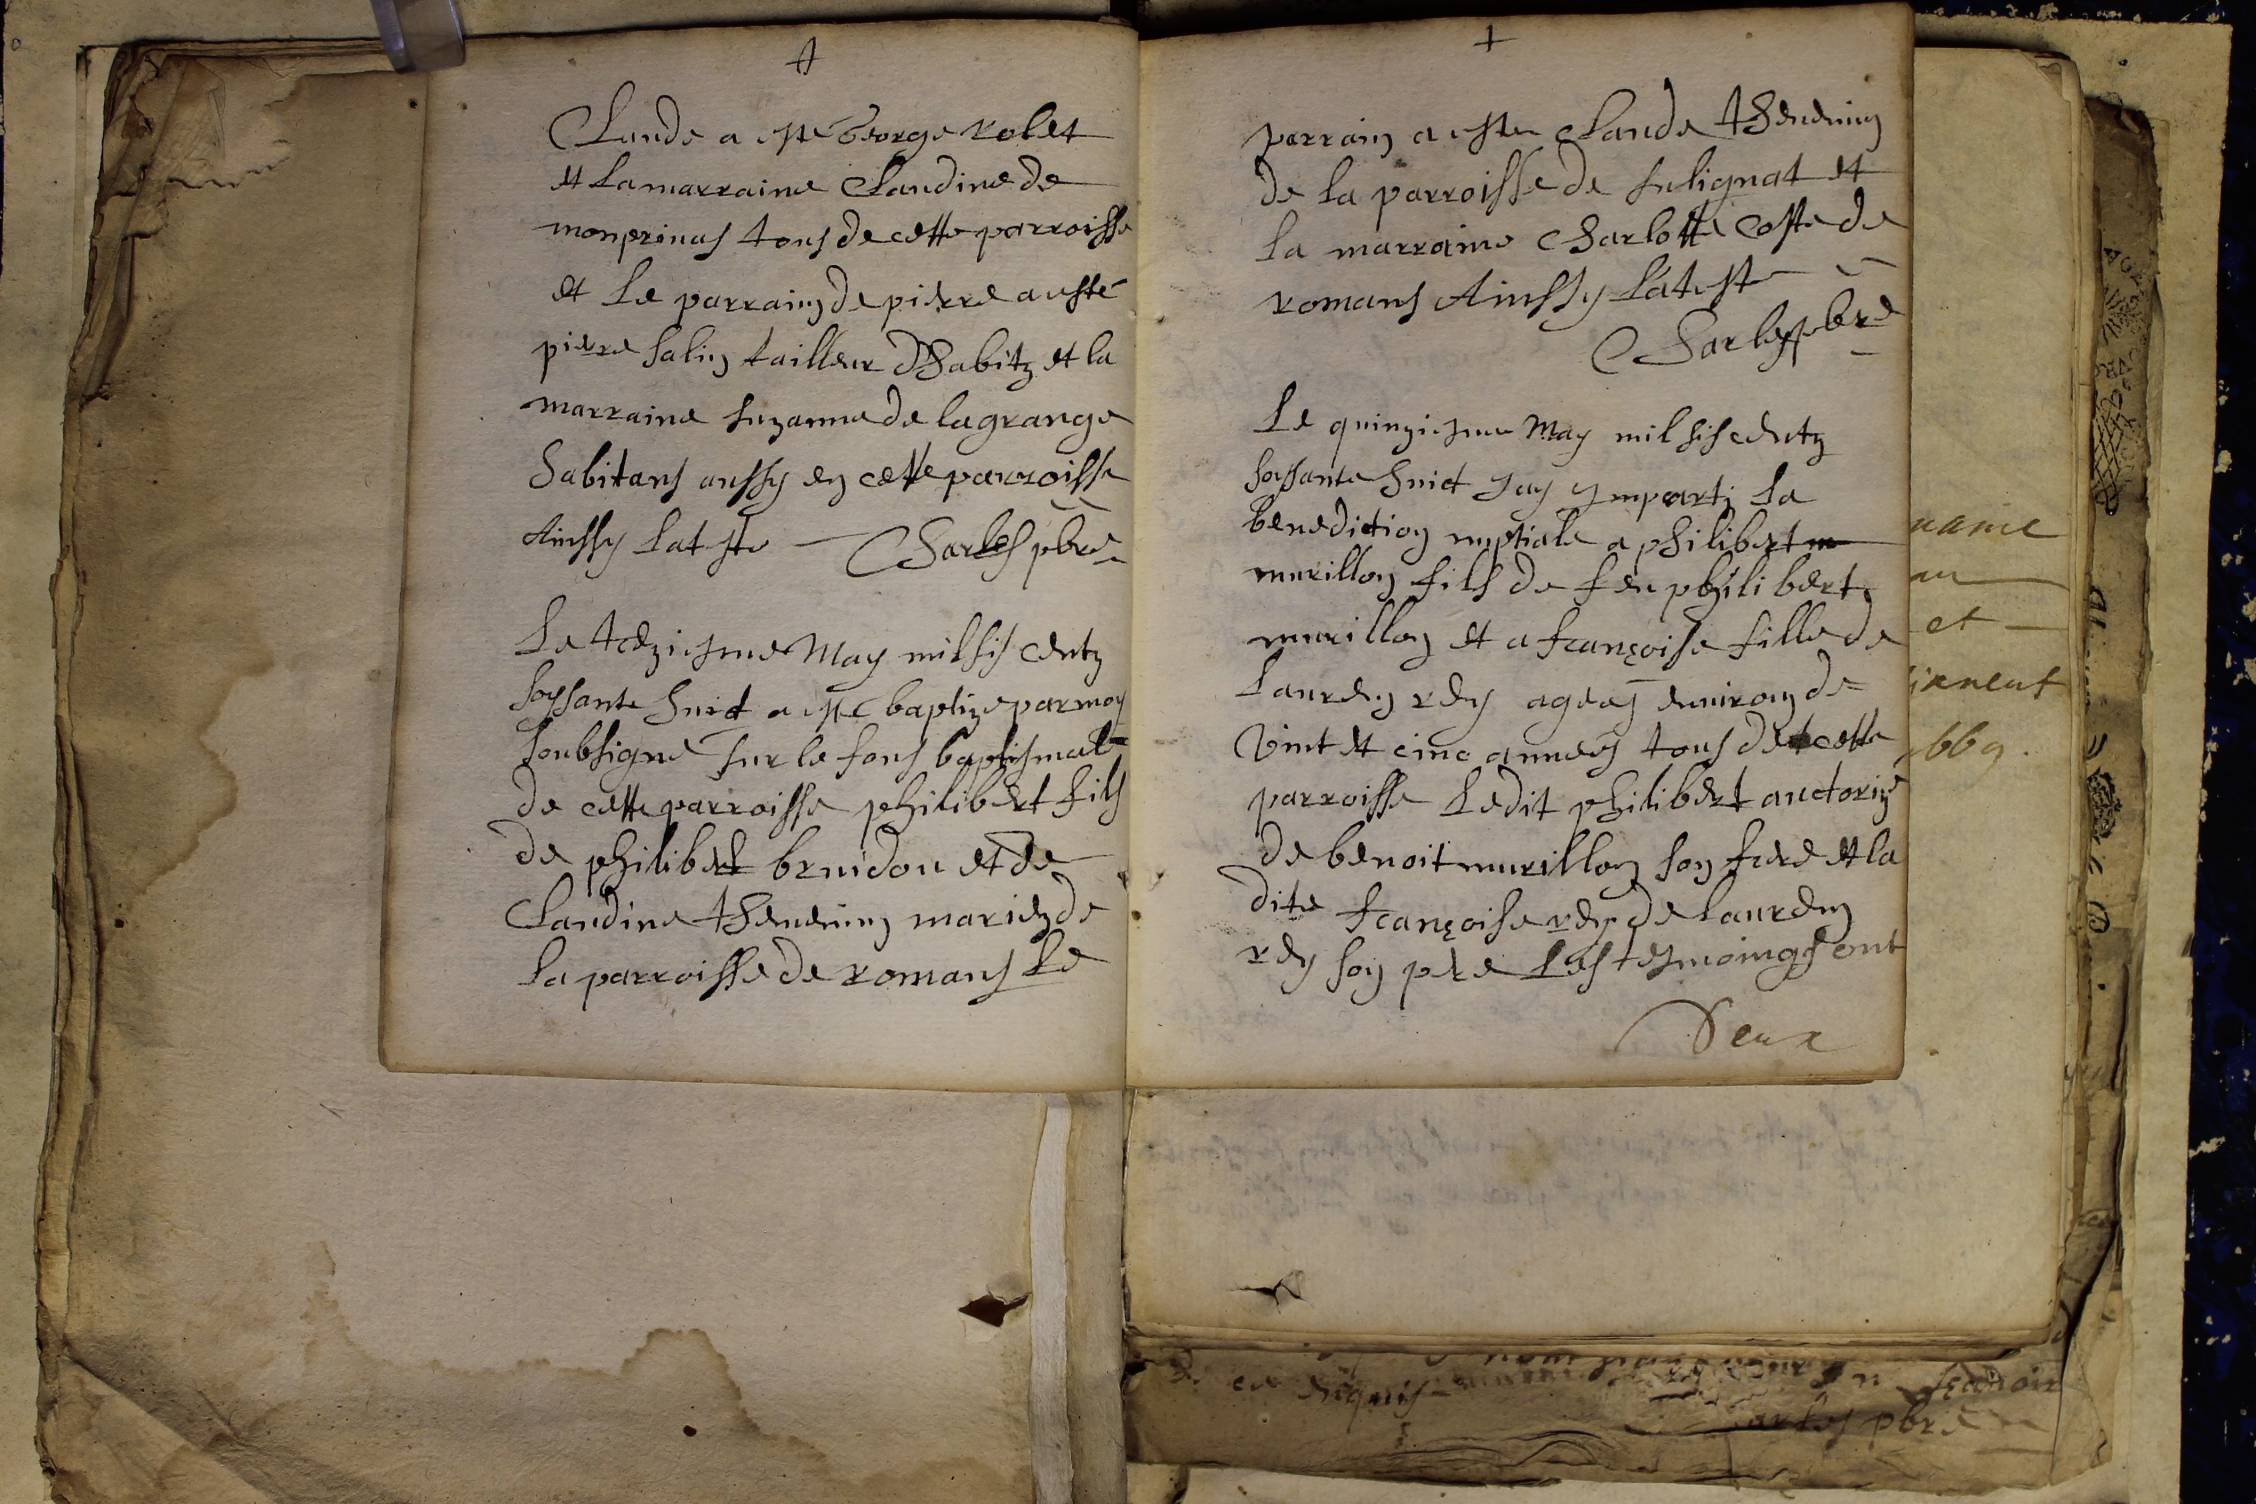 +
Claude a esté George rolet
et La marraine Claudine de
monprinas tous de cette parroisse
et Le parrain de pierre a esté
pierre Salin tailleur D'habitz et la
marraine suzanne de lagrange
habitans aussy en cette parroisse
Ainssy L'ateste Charles pbre
Le treziesme May mil sis centz
soyssante huict a esté baptizé par moy
soubsigné sur le fons baptismal
de cette parroisse philibert fils
de philibert bruidon et de
Claudine thevenin mariez de
la parroisse de romans Le
+
parrain a esté Claude thevenin
de la parroisse de sulignat et
la marraine Charlotte Coste de
romans Ainssy L'ateste
Charles pbre
Le quinziesme May mil sis centz
soyssante huict j'ay ymparty La
benediction nuptiale a philibert
murillon fils de feu philibert
murillon et a françoise fille de
Lauren rey agees environ de
vint et cinc annees tous de cette
parroisse Ledit philibert auctorizé
de benoit murillon son frere et la
dite françoise rey de Lauren
rey son pere Les tesmoings ont
Deux
et
bb9.
pbre